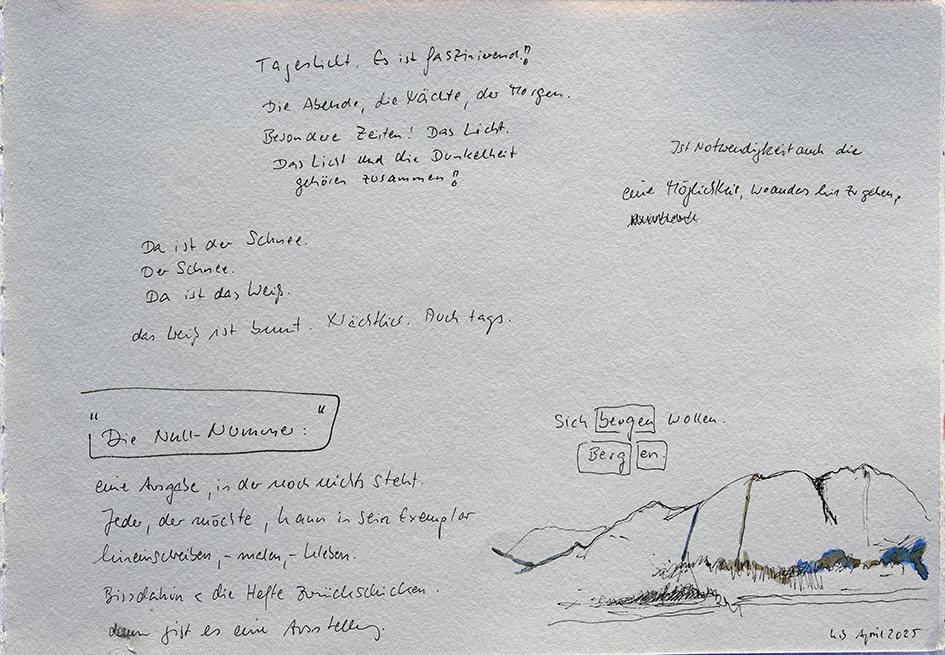 Tageslicht. Es ist faszinierend!!
Die Abende, die Nächte, der Morgen.
Besondere Zeiten! Das Licht.
Das Licht und die Dunkelheit
gehören zusammen!!
Ist Notwendigkeit auch die
eine Möglichkeit, woanders hin zu gehen,
Da ist der Schnee.
Der Schnee.
Da ist das Weiß.
das Weiß ist bunt. Nächtlich. Auch tags.
"Die Null-Nummer:"
eine Ausgabe, in der noch nichts steht.
Jeder, der möchte, kann in sein Exemplar
hineinschreiben, -malen, -kleben.
die Hefte zurückschicken.
dann gibt es eine Ausstellung.
Sich bergen wollen.
Berg en.
April 2025